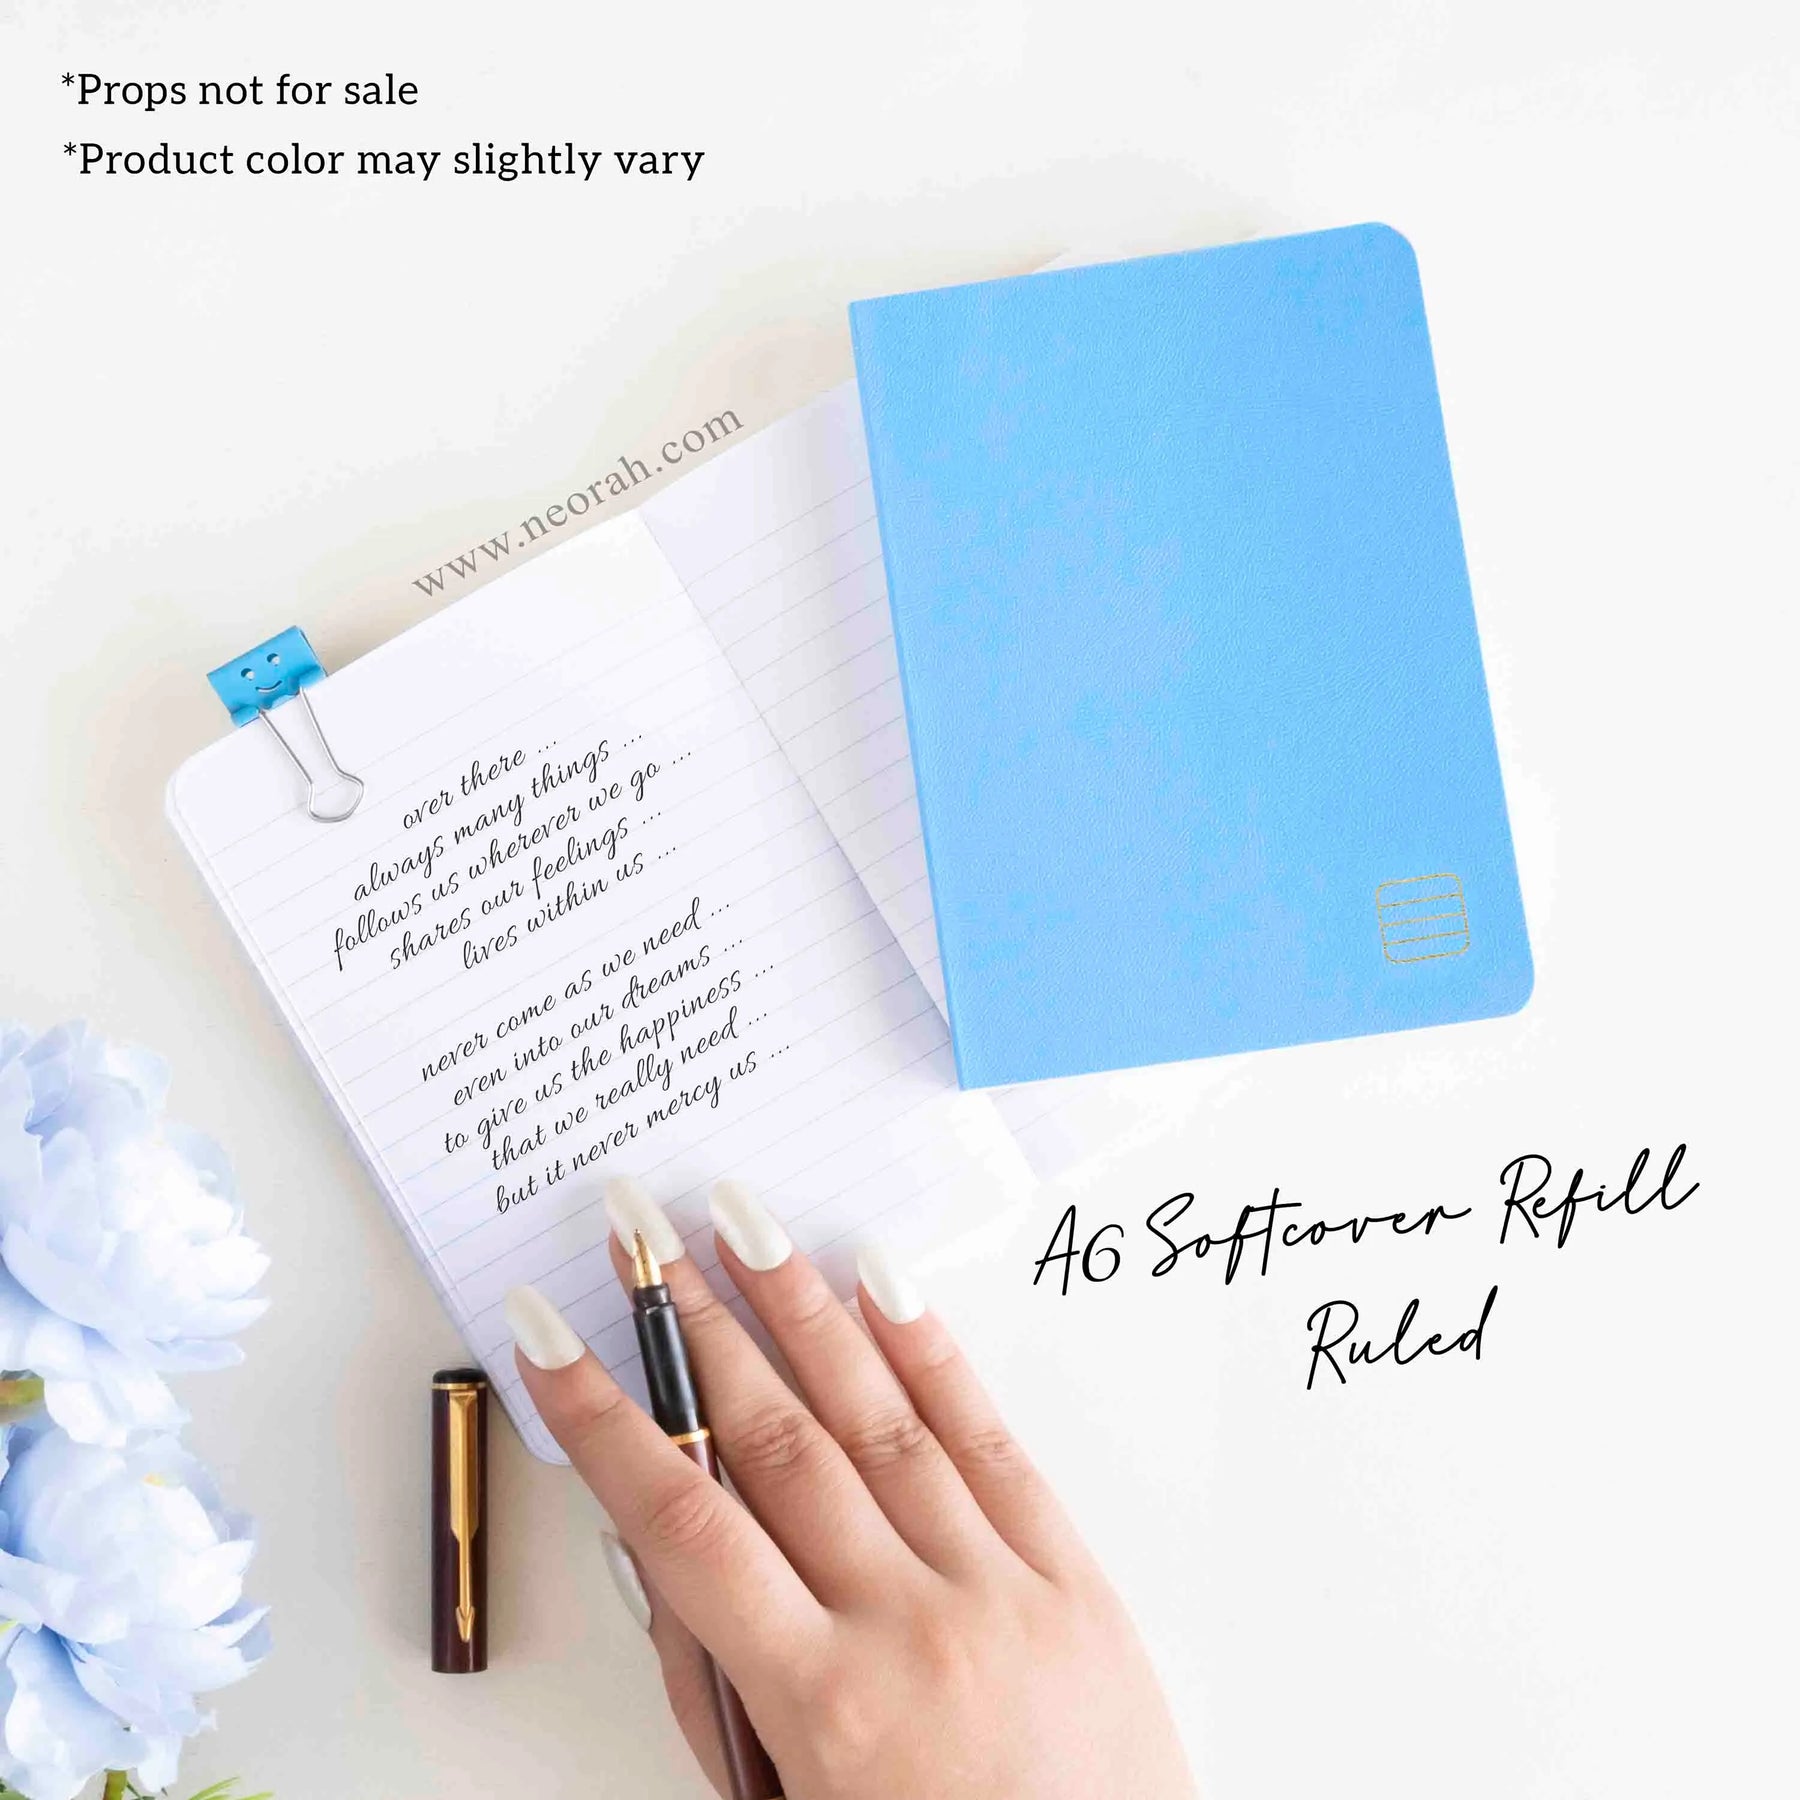 *Props not for sale
*Product color may slightly vary
www.neorah.com
over there ...
always many things ...
follows us wherever we go ...
shares our feelings ...
lives within us ...
never come as we need ...
even into our dreams ...
to give us the happiness ...
that we really need ...
but it never mercy us ...
A6 Softcover Refill
Ruled